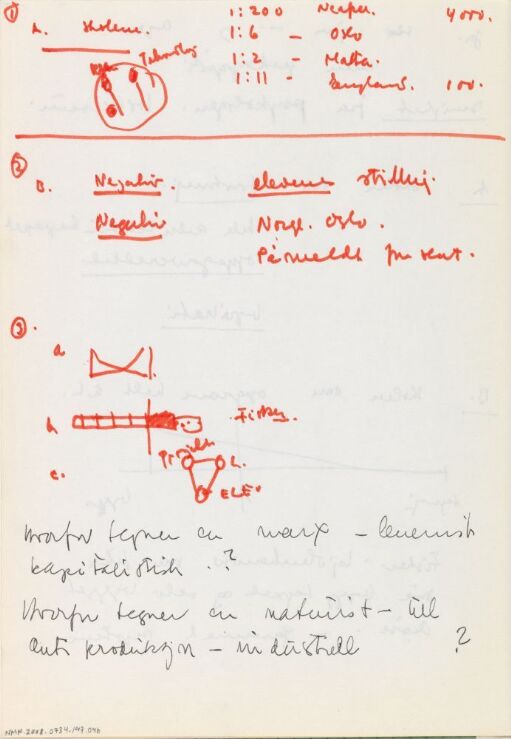 ①
A. Skolene. 1:200 Neapel. 4000.
1:6 – Oslo
1:2 – Malta.
1:11 – England. 100.
②
B. Negativ. elevens stilling.
Negativ Norge. Oslo.
Påmeldt for sent.
③.
a.
b.
c. Prosjekt L.
ELEV
Hvorfor tegner en marx – leninist
kapitalistisk ?
Hvorfor tegner en naturist – til
anti produksjon – industriell ?
NMK.2008.0734.147.046